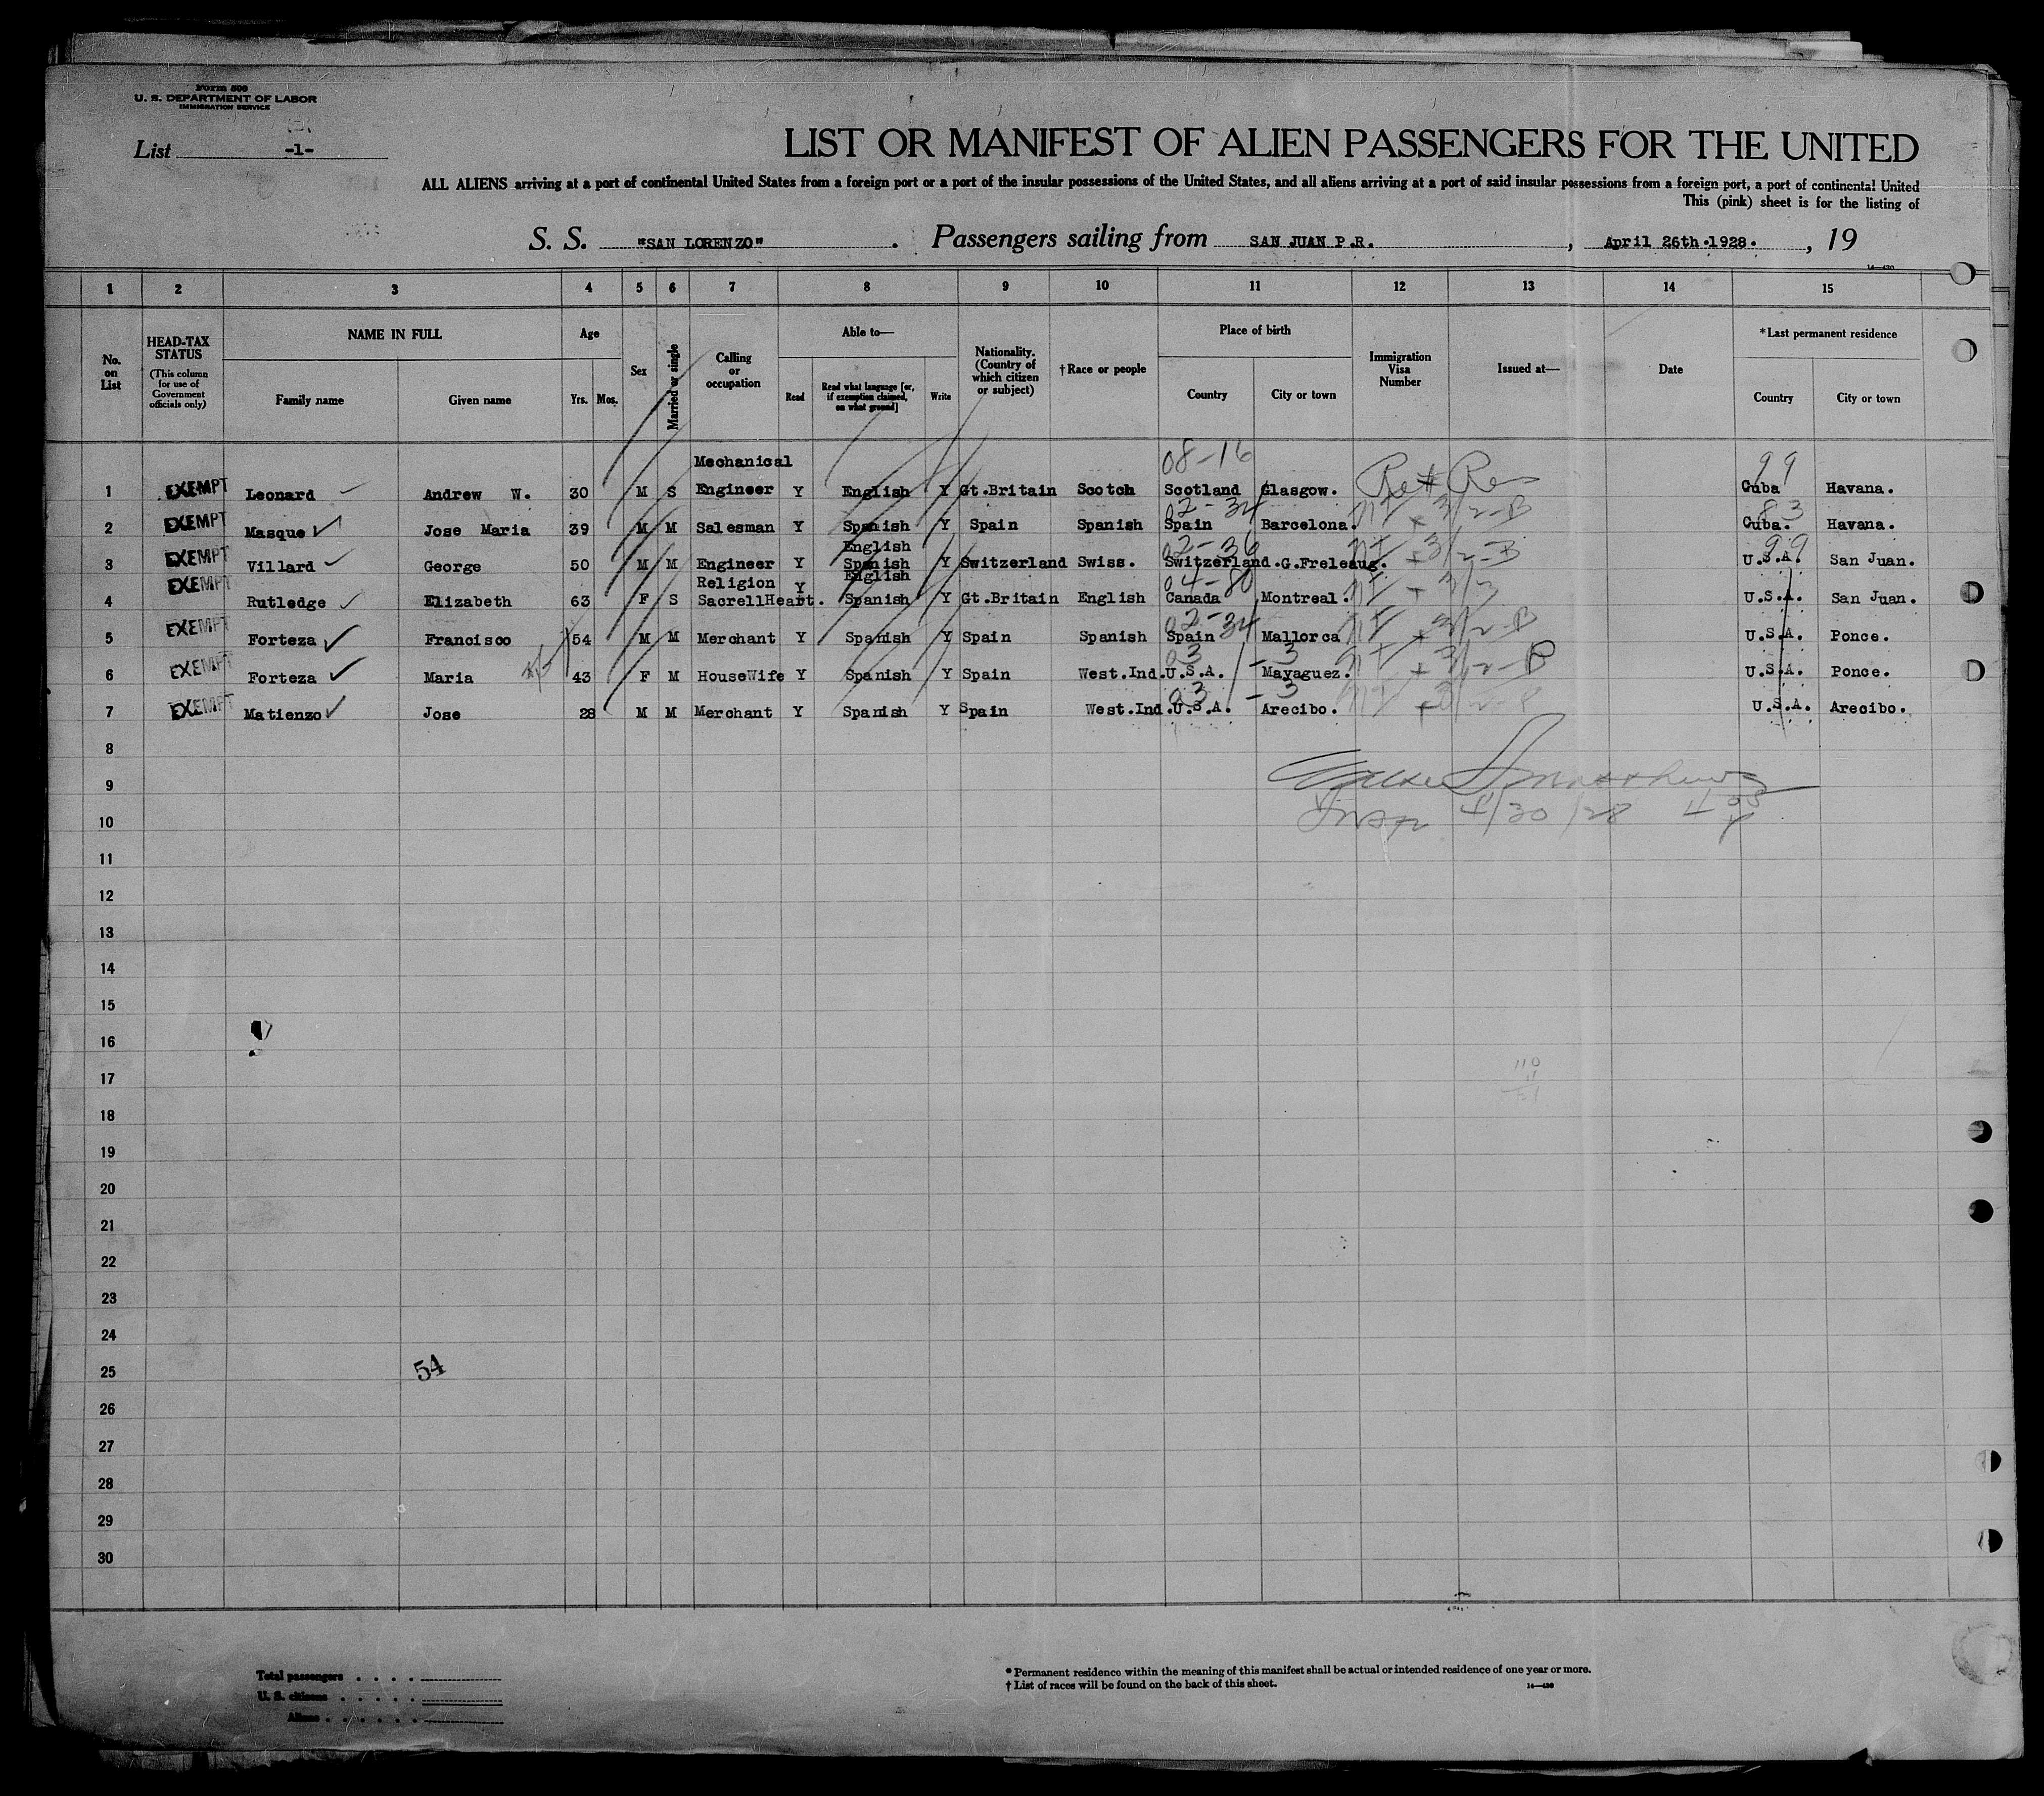 Form 500
U. S. DEPARTMENT OF LABOR
IMMIGRATION SERVICE
List -1-
LIST OR MANIFEST OF ALIEN PASSENGERS FOR THE UNITED
ALL ALIENS arriving at a port of continental United States from a foreign port or a port of the insular possessions of the United States, and all aliens arriving at a port of said insular possessions from a foreign port, a port of continental United
This (pink) sheet is for the listing of
S. S. "SAN LORENZO" . Passengers sailing from SAN JUAN P.R. , April 26th.1928. , 19
14—430
1 2 3 4 5 6 7 8 9 10 11 12 13 14 15
No. on List
HEAD-TAX STATUS (This column for use of Government officials only)
NAME IN FULL
Family name Given name
Age
Yrs. Mos.
Sex
Married or single
Calling or occupation
Able to—
Read Read what language [or, if exemption claimed, on what ground] Write
Nationality. (Country of which citizen or subject)
†Race or people
Place of birth
Country City or town
Immigration Visa Number
Issued at—
Date
*Last permanent residence
Country City or town
Mechanical 08-16 99
1 EXEMPT Leonard Andrew W. 30 M S Engineer Y English Y Gt.Britain Scotch Scotland Glasgow. Cuba Havana.
02-34 83
2 EXEMPT Masque Jose Maria 39 M M Salesman Y Spanish Y Spain Spanish Spain Barcelona. Cuba. Havana.
English 02-36 99
3 EXEMPT Villard George 50 M M Engineer Y Spanish Y Switzerland Swiss. Switzerland.G.Freleaug. U.S.A. San Juan.
Religion English 04-80
4 EXEMPT Rutledge Elizabeth 63 F S SacrellHeart. Y Spanish Y Gt.Britain English Canada Montreal. U.S.A. San Juan.
02-34
5 EXEMPT Forteza Francisco 54 M M Merchant Y Spanish Y Spain Spanish Spain Mallorca U.S.A. Ponce.
03 - 3
6 EXEMPT Forteza Maria 43 F M HouseWife Y Spanish Y Spain West.Ind. U.S.A. Mayaguez. U.S.A. Ponce.
03 - 3
7 EXEMPT Matienzo Jose 28 M M Merchant Y Spanish Y Spain West.Ind. U.S.A. Arecibo. U.S.A. Arecibo.
8
9
10 Insp 4/30/28
11
12
13
14
15
16
17
18
19
20
21
22
23
24
25 54
26
27
28
29
30
Total passengers . . . .
U. S. citizens . . . . .
Aliens . . . . . .
* Permanent residence within the meaning of this manifest shall be actual or intended residence of one year or more.
† List of races will be found on the back of this sheet.
14—430